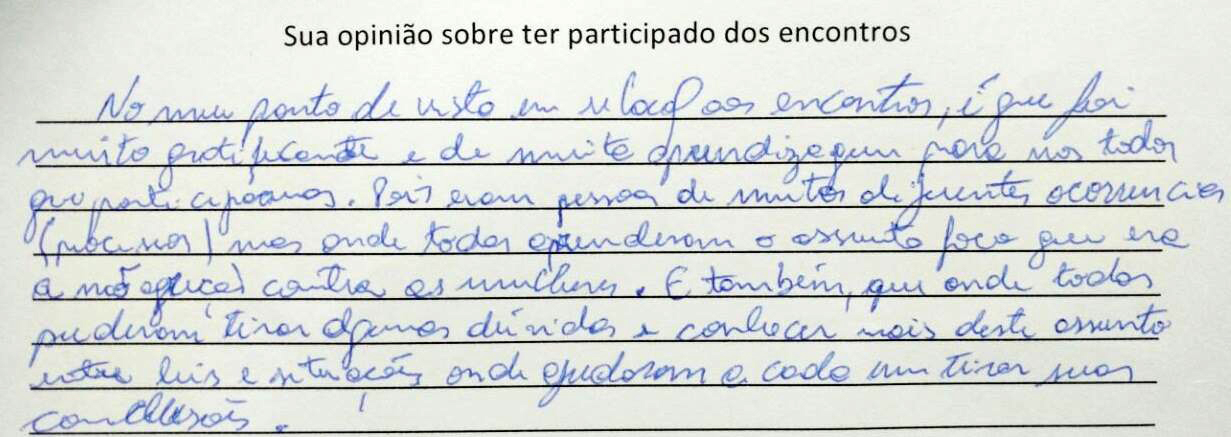 Sua opinião sobre ter participado dos encontros
No meu ponto de visto em relação aos encontros, é que foi
muito gratificante e de muita aprendizagem para nos todos
que participamos. Pois eram pessoas de muitas diferentes ocorrencias
(processos) mas onde todos aprenderam o assunto foco que era
a não agressão contra as mulheres. E também, que onde todos
puderam tirar algumas dúvidas e conhecer mais deste assunto
entre leis e situações onde ajudaram a cada um tirar suas
conclusões.